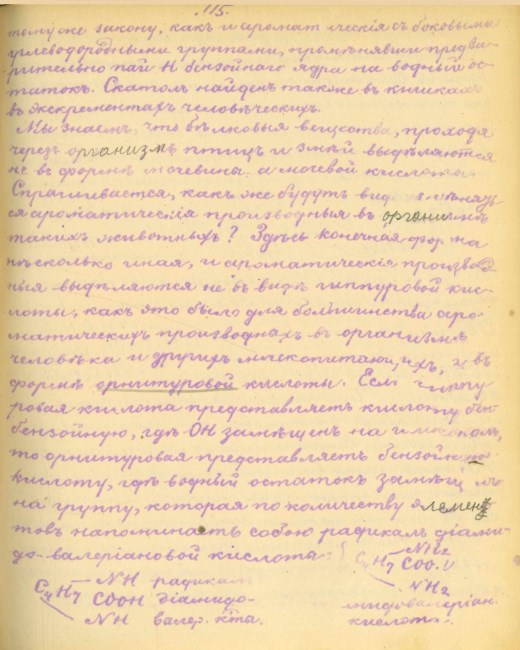 115.
тому же закону, какъ и аромат ическія съ боковыми
углеводородными группами, промѣнявши предва-
рительно пай H бензойнаго ядра на водный ос-
татокъ. Скатолъ найденъ также въ кишкахъ
въ экскрементахъ человѣческихъ.
Мы знаемъ, что бѣлковыя вещества, проходя
черезъ организмъ птицъ и змѣй выдѣляются
не въ формѣ мочевины а мочевой кислоты
Спрашивается, какъ же будутъ
ся ароматическія производныя въ организмѣ
такихъ животныхъ? Здѣсь конечная фор ма
нѣсколько иная, и ароматическія производ
ныя выдѣляются не въ видѣ гиппуровой кис-
лоты, какъ это было для большинства аро-
матическихъ производныхъ въ организмѣ
человѣка и другихъ млекопитающихъ, а въ
формѣ орнитуровой кислоты. Если гиппу
ровая кислота представляетъ кислоту
бензойную, гдѣ OH замѣщенъ на гликоколь,
то орнитуровая представляетъ бензойную
кислоту, гдѣ водный остатокъ замѣщ нъ
на группу, которая по количеству элемен
товъ напоминаетъ собою радикалъ діами-
до-валеріановой кислоты:
C4H7 NH2 COOH NH2
мидовалеріан.
кислота.
C4H7 NH COOH NH
радикалъ
діамидо-
валер. к-та.